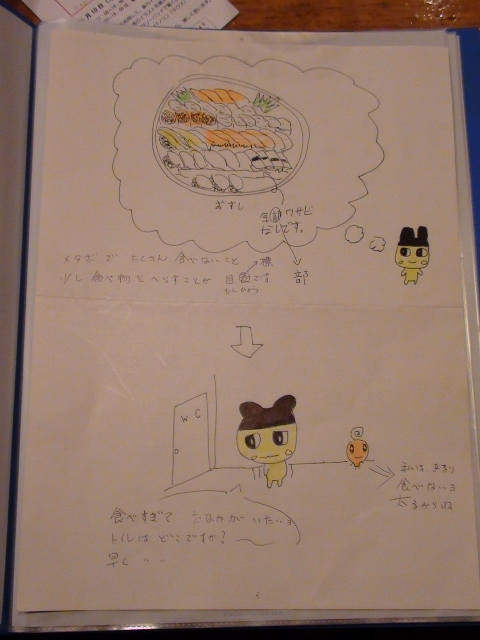 おすし
ワサビ
なしです。
メタボで たくさん 食べないこと
少し 食べ物を へらすことが 目 です
標
部
W.C
私は あまり
食べないヨ
太るからね
食べすぎて おなかが いたいヨ
トイレは どこですか?
早く 〃 〃